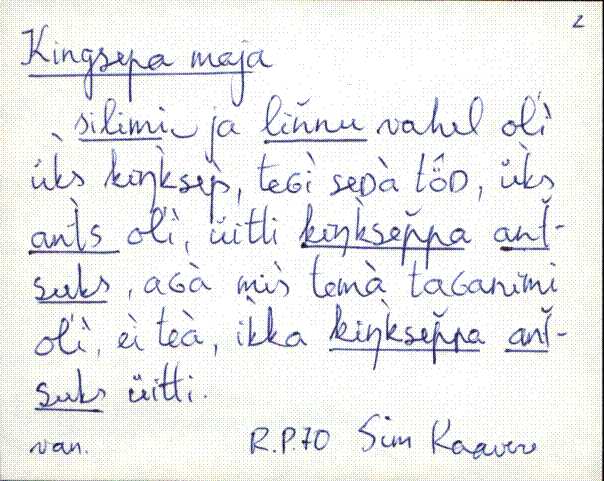 2
Kingsepa maja
silimi ja liňnu vahel ol'ì
ùks kiŋ̀ksep̀, teGì seDà tȫ̂D, ùks
ant̀s ol'ì, üitti kiŋ̀ksep̆pa ant̆-
suks, aGà mis̀ temà taGanimi
ol'ì, ei teà, ìkka kiŋ̀ksep̆pa ant̆-
suks üitti.
van. R.P.70 Sim Kaavere